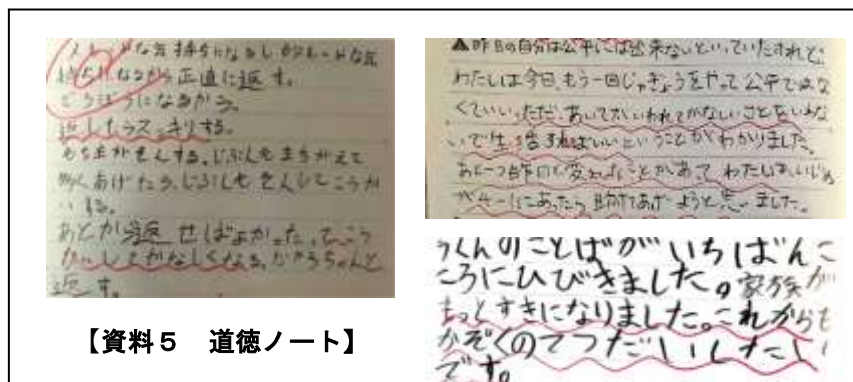 気持ちになるし
気
持ちになるから正直に返す。
どろぼうになるから。
返したらスッキリする。
もち主がそんする。じぶんもまちがえて
多くあげたら、じぶんもそんしてこうか
いする。
あとから返せばよかったってこう
かいしてかなしくなる。だからちゃんと
返す。
【資料5 道徳ノート】
▲昨日の自分は公平には出来ないといっていたけれど、
わたしは今日、もう一回じゅぎょうをやって公平ではな
くていい。ただ、あいてがいわれて
いで生活すればいいということがわかりました。
あと一つ昨日と変わったことがあってわたしは、いじめ
が4-1にあったら助けてあげようと思いました。
うくんのことばがいちばんこ
ころにひびきました。家族が
もっとすきになりました。これからも
かぞくのてつだいしたい
です。